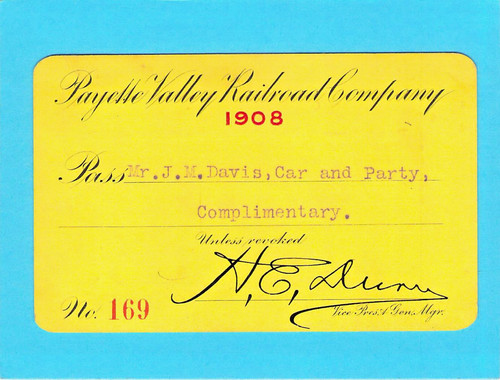 Payette Valley Railroad Company
1908
Pass Mr. J. M. Davis, Car and Party,
Complimentary.
Unless revoked
H. E. Dunn
No. 169
Vice Pres. & Gen. Mgr.